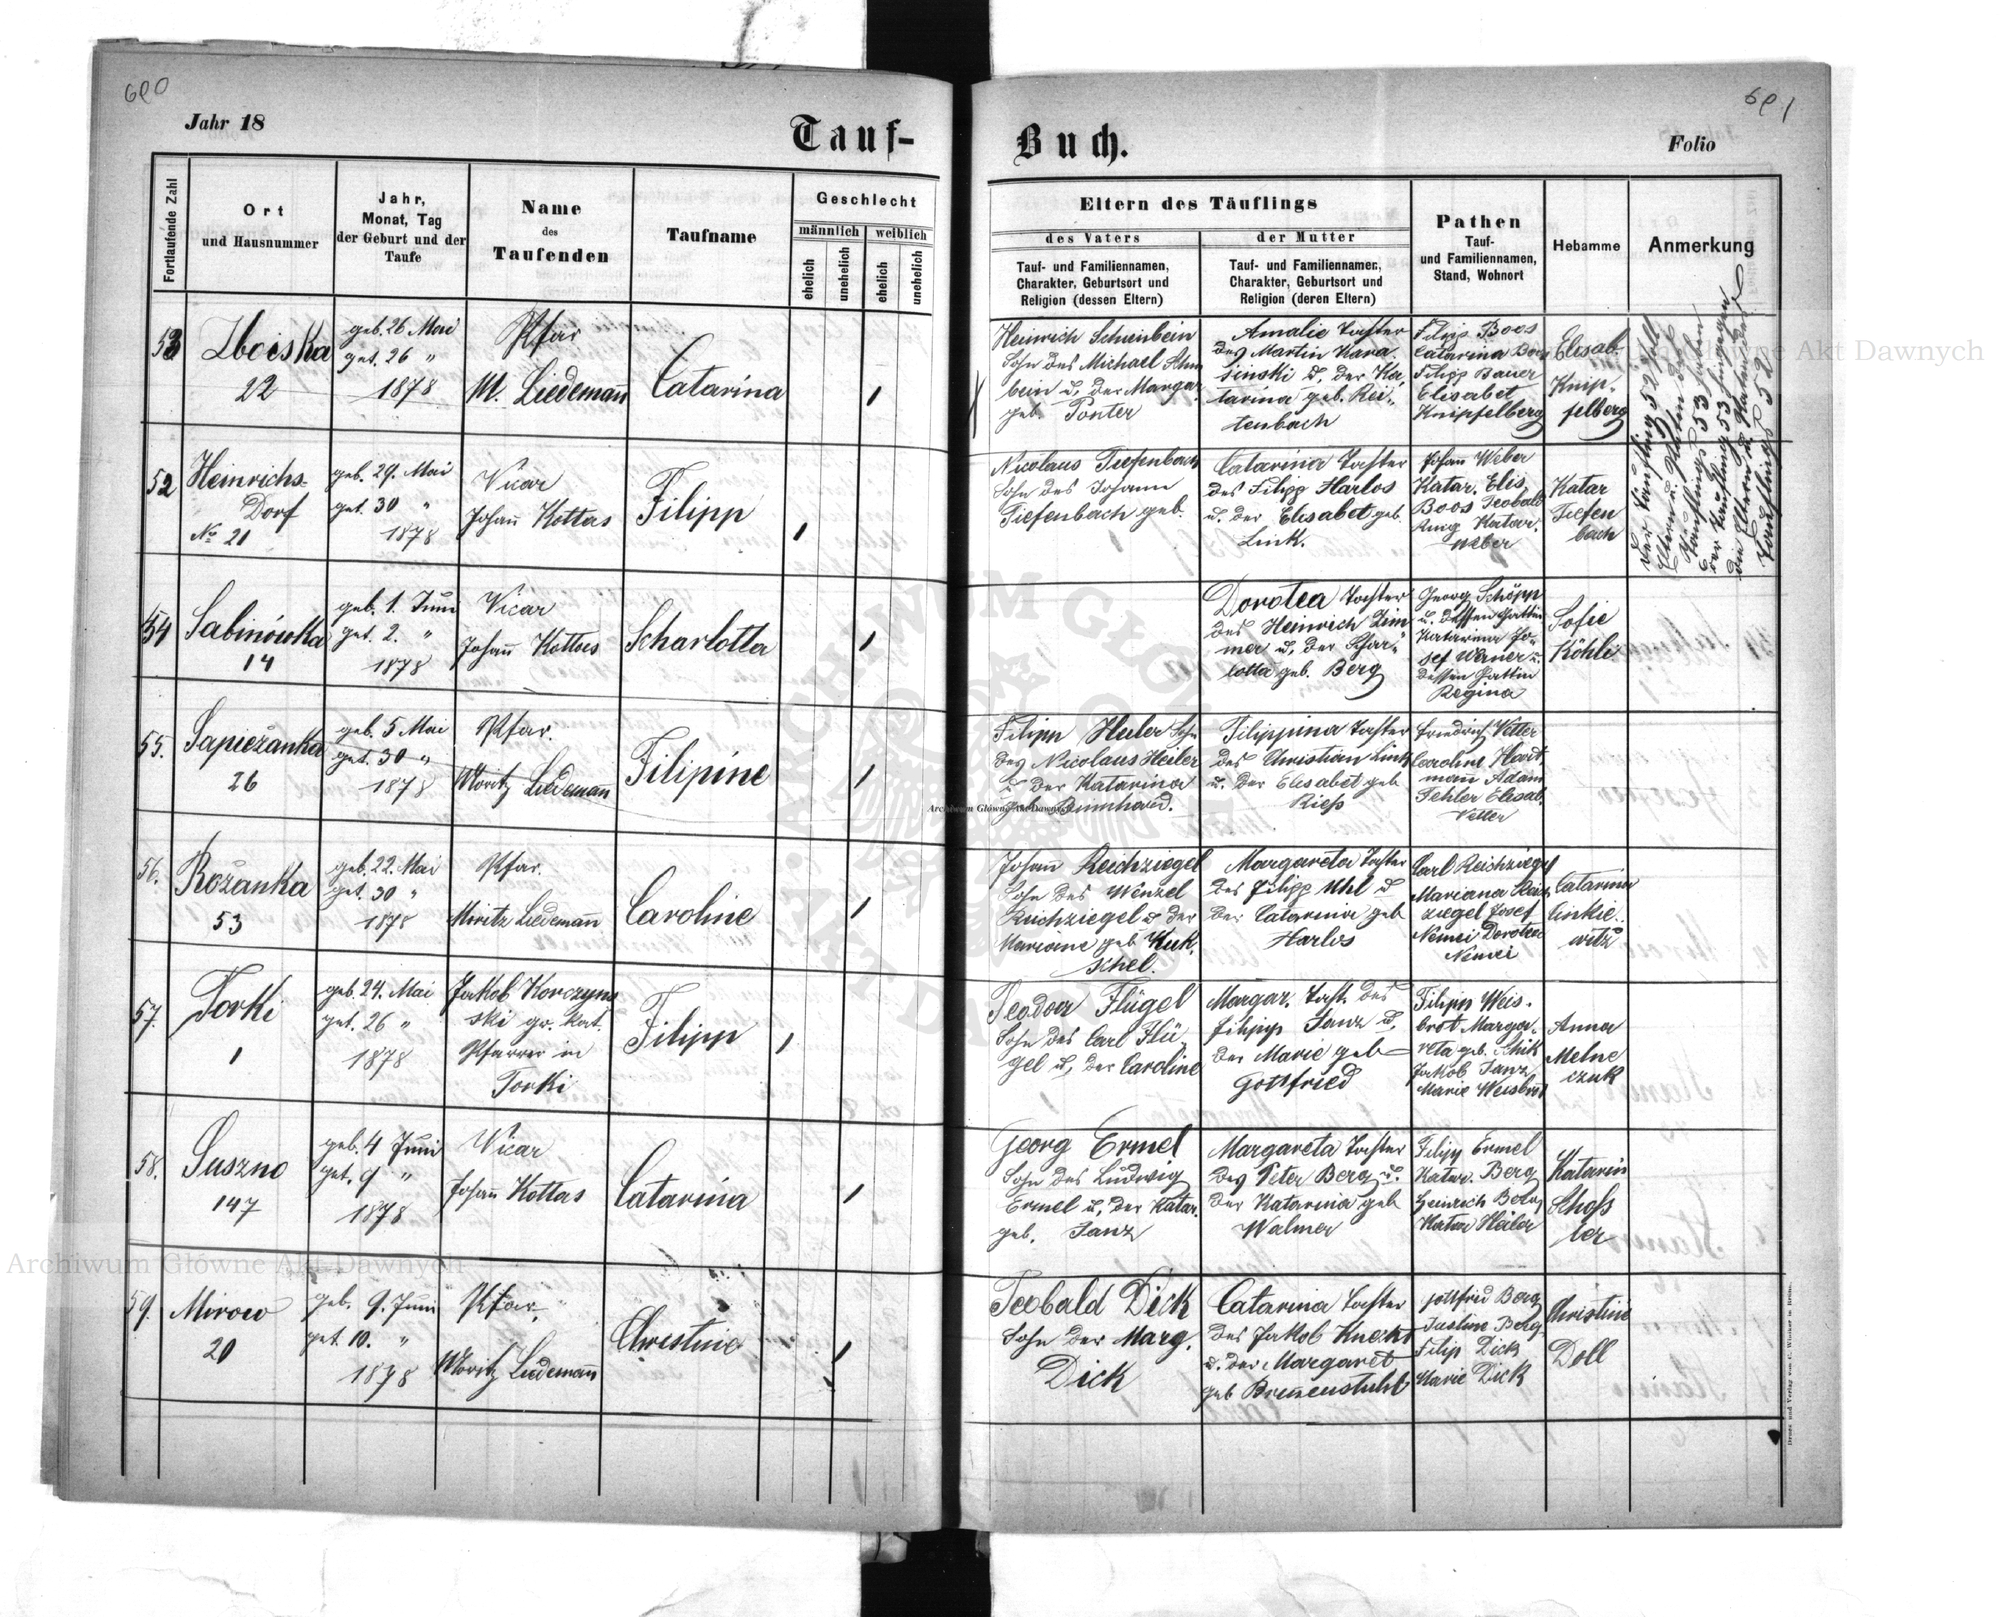 690
Jahr 18
Tauf-
Fortlaufende Zahl
Ort
und Hausnummer
Jahr,
Monat, Tag
der Geburt und der
Taufe
Name
des
Taufenden
Taufname
Geschlecht
männlich
weiblich
ehelich
unehelich
ehelich
unehelich
53
Zboiska
22
geb. 26 Mai
get. 26 "
1878
Pfar
M. Liedemañ
Catarina
52
Heinrichs-
Dorf
No 21
geb. 29. Mai
get. 30 "
1878
Vicar
Johañ Kottas
Filipp
54
Sabinówka
14
geb. 1. Juni
get. 2. "
1878
Vicar
Johañ Kottas
Scharlotta
55.
Sapiežanka
26
geb. 5 Mai
get. 30 "
1878
Pfar.
Moritz Liedeman
Filipine
56.
Rožanka
53
geb. 22. Mai
get. 30 "
1878
Pfar.
Moritz Liedemañ
Caroline
57.
Torki
1
geb. 24. Mai
get. 26 "
1878
Jakob Korczyns
ski gr. kat.
Pfarrer in
Torki
Filipp
58.
Suszno
147
geb. 4 Juni
get. 9 "
1878
Vicar
Johañ Kottas
Catarina
59.
Mirow
20
geb. 9. Juni
get. 10. "
1878
Pfar.
Moritz Liedemañ
Christine
691
Buch.
Folio
Eltern des Täuflings
des Vaters
der Mutter
Tauf- und Familiennamen,
Charakter, Geburtsort und
Religion (dessen Eltern)
Tauf- und Familiennamen,
Charakter, Geburtsort und
Religion (deren Eltern)
Pathen
Tauf-
und Familiennamen,
Stand, Wohnort
Hebamme
Anmerkung
Heinrich Schienbein
Sohn des Michael Schin
bein u. der Margar.
geb. Ponter
Amalie Tochter
des Martin Kara.
sinski u. der Ka,
tarina geb. Rei-
tenbach
Filipp Boos
Catarina Boos
Filipp Bauer
Elisabet
Knipfelberg
Elisab.
Knip-
felberg
Der Täufling 52 soll
Eltern u. Paten des
Täuflings 53 haben
Der Täufling 53 hingegen
die Eltern u. Paten des
Täuflings 52
Nicolaus Tiefenbach
Sohn des Johann
Tiefenbach geb.
Catarina Tochter
des Filipp Harlos
u. der Elisabet geb.
Link.
Johañ Weber
Katar. Elis,
Boos Teobald
Ring Katar.
Weber
Katar
Tiefen
bach
Dorotea Tochter
des Heinrich Zim
mer u. der Schar-
lotta geb. Berg
Georg Schöpp
u. dessen Gattin
Katarina Jo-
sef Werner u.
dessen Gattin
Regina
Sofie
Köhle
Filipp Heiler Sohn
des Nicolaus Heiler
u der Katarina
geb. Bernhard.
Filippina Tochter
des Christian Link
u. der Elisabet geb
Rieß
Friedrich Vetter
Caroline Hart,
mann Adam
Fehler Elisab.
Vetter
Johañ Reichziegel
Sohn des Wenzel
Reichziegel u der
Mariane geb Kuk,
schel.
Margareta Tochter
des Filipp Uhl u
der Catarina geb
Harlos
Carl Reichziegel
Mariana Reich
ziegel Josef
Nemei Dorotea
Nemei
Catarina
Linkie.
witz
Teodor Flügel
Sohn des Carl Flü-
gel u, der Caroline
Margar. Tocht. des
Filipp Janz u,
der Marie geb
Gottfried
Filipp Weis.
brot Marga.
reta geb. Schik
Jakob Janz
Marie Weisbrot
Anna
Melne
czuk
Georg Ermel
Sohn des Ludwig
Ermel u, der Katar.
geb. Janz
Margareta Tochter
des Peter Berg u.
der Katarina geb
Walmer
Filipp Ermel
Katar. Berg
Heinrich Berg
Katar Heiler
Katarin
Schoß
ler
Teobald Dick
Sohn der Marg.
Dick
Catarina Tochter
des Jakob Knecht
u. der Margaret
geb Brenenstuhl
Gottfried Berg
Justine Berg
Filip Dick
Marie Dick
Christine
Doll
Druck und Verlag von C. Winiker in Brünn.
Archiwum Główne Akt Dawnych
Archiwum Główne Akt Dawnych
Archiwum Główne Akt Dawnych
ARCHIWUM GŁÓWNE AKT DAWNYCH